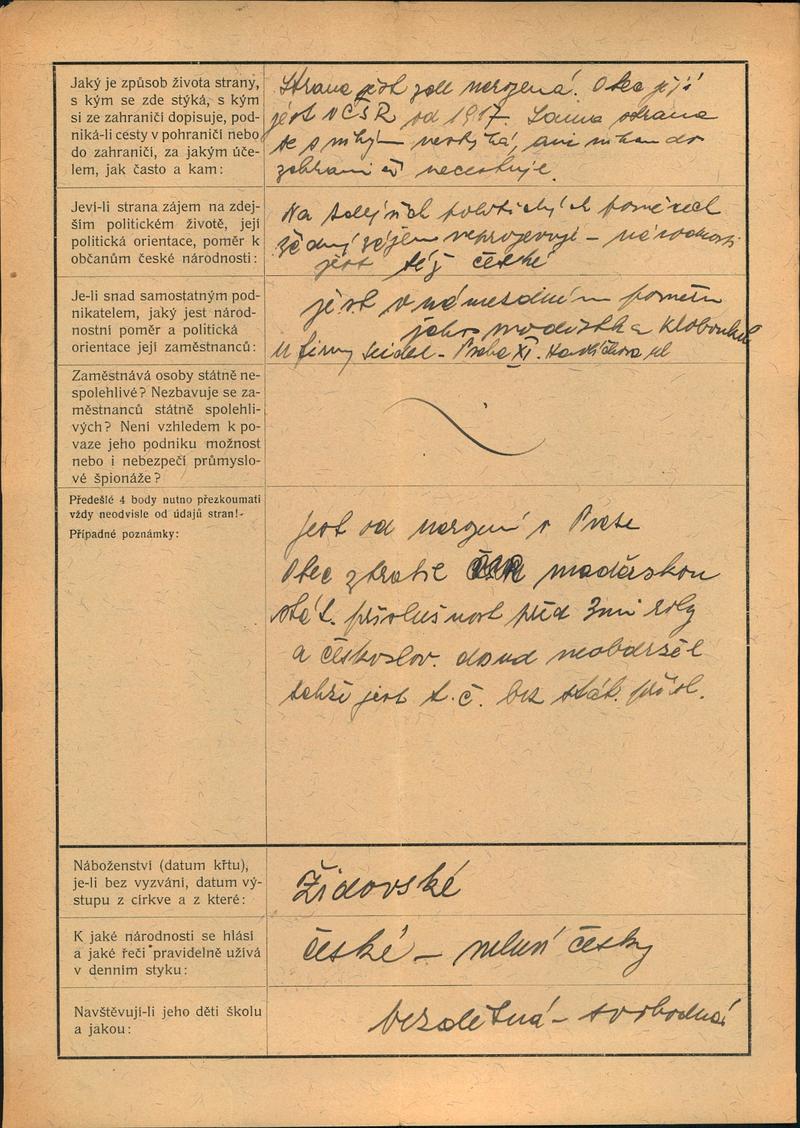 Jaký je způsob života strany,
s kým se zde stýká, s kým
si ze zahraničí dopisuje, pod-
niká-li cesty v pohraničí nebo
do zahraničí, za jakým úče-
lem, jak často a kam:
Strana jest zde narozená. Otec její
jest v ČSR od 1917. Sama strana
se s nikým nestýká, ani nikam do
zahraničí necestuje.
Jeví-li strana zájem na zdej-
ším politickém životě, její
politická orientace, poměr k
občanům české národnosti:
Na zdejších politických poměrech
žádný zájem neprojevuje – národnosti
jest též české
Je-li snad samostatným pod-
nikatelem, jaký jest národ-
nostní poměr a politická
orientace její zaměstnanců:
jest v námezdném poměru
jako modistka klobouků
u firmy Seidel - Praha XI. Havlíčkova ul
Zaměstnává osoby státně ne-
spolehlivé? Nezbavuje se za-
městnanců státně spolehli-
vých? Není vzhledem k po-
vaze jeho podniku možnost
nebo i nebezpečí průmyslo-
vé špionáže?
Předešlé 4 body nutno přezkoumati
vždy neodvisle od údajů stran!-
Případné poznámky:
jest od narození v Praze
Otec ztratil maďarskou
stát. příslušnost před 3mi roky
a českoslov. dosud neobdržel
takže jest t.č. bez stát. přísl.
Náboženství (datum křtu),
je-li bez vyzvání, datum vý-
stupu z církve a z které:
Židovské
K jaké národnosti se hlásí
a jaké řeči pravidelně užívá
v denním styku:
české – mluví česky
Navštěvují-li jeho děti školu
a jakou:
bezdětná – svobodná